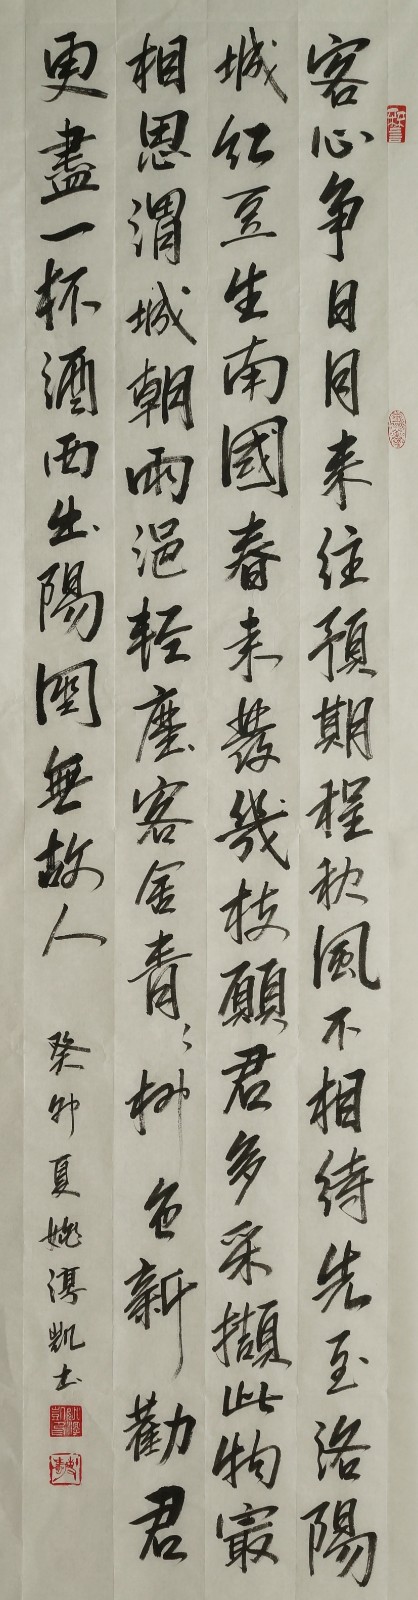 客心争日月来往預期程秋風不相待先至洛陽
城红豆生南國春来發幾枝願君多采擷此物最
相思渭城朝雨浥輕塵客舍青〻柳色新勸君
更盡一杯酒西出陽関無故人
癸卯夏姚淂凱书